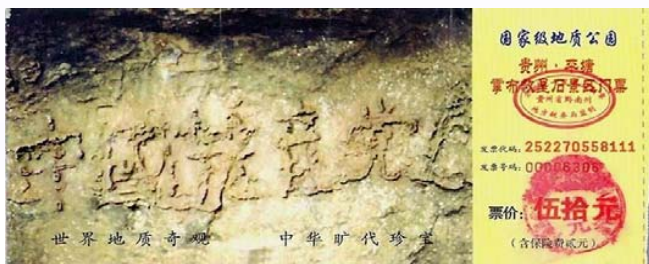 中國共産党亡
世界地质奇观 中华旷代珍宝
国家级地质公园
贵州·平塘
掌布救星石景区门票
贵州省黔南州
发票代码: 252270558111
发票号码: 00006306
票价: 伍拾元
(含保险费贰元)